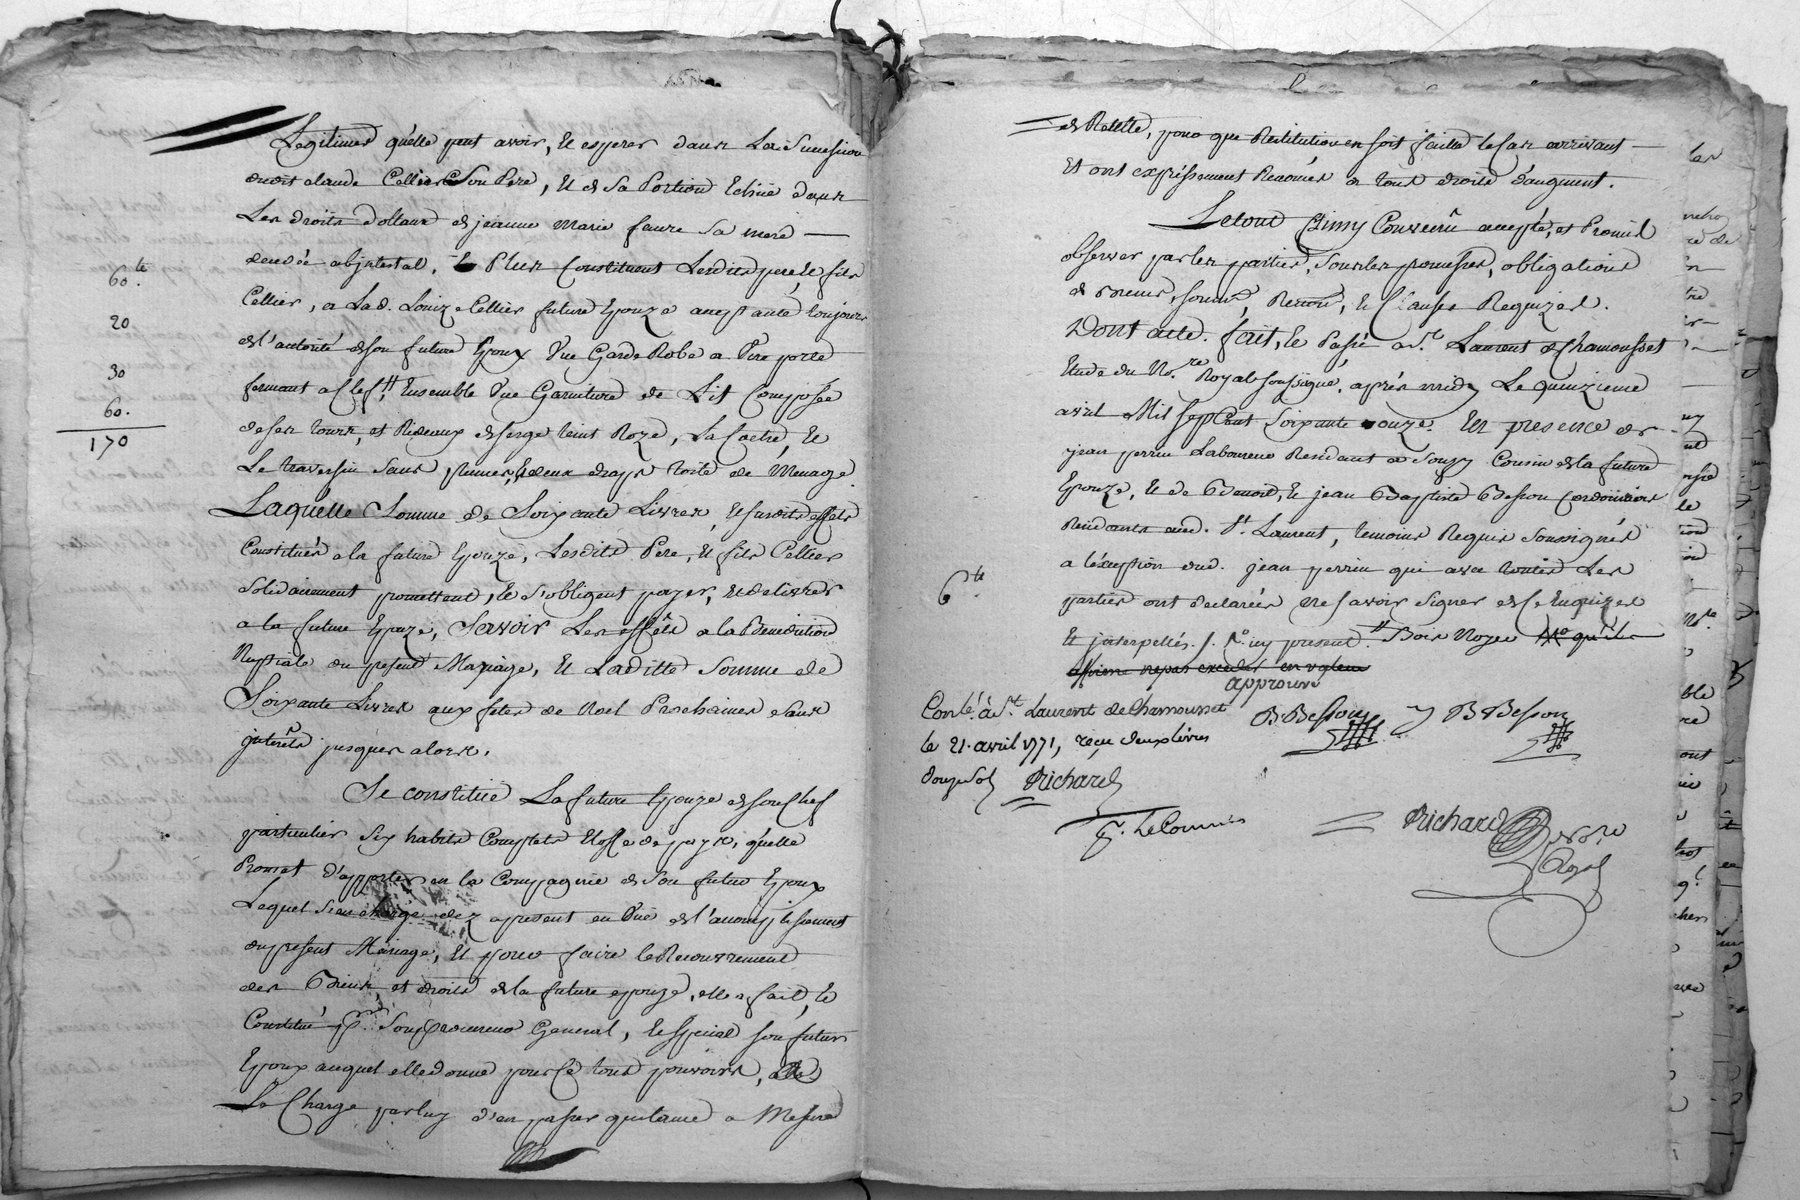 Legitimes qu'elle peut avoir, et esperer dans La Succession
dudit claude Cellier Son Pere, et de Sa Portion Echue dans
Les droits dottaux de jeanne Marie faure Sa mere —
decedée abjntestat, Et Plus Constituent Lesdits pere, et fils
60.tt
Cellier, a Lad. Louize Cellier future Epouze acceptante toujours
20
de l'autorité de son futur Epoux Vne Garde Robe a Vne porte
30
fermant a Clef, tt Ensemble Vne Garniture de Lit Composée
60.
de ses tours, et Rideaux de serge teint Roze, La Coetre, et
170
Le traversin sans plumes, et deux draps toile de Menage.
Laquelle Somme de Soixante Livres, et susdits effets
Constitués a la future Epouze, Lesdits Pere, et fils Cellier
Solidairement promettent, et s'obligent payer, et delivrer
a la future Epouze, Savoir Les effets a la Benediction
Nuptiale du present Mariage, et Laditte Somme de
Soixante Livres aux fetes de Noel Prochaines sans
jnterets jusques alors.
Se constitüe La future Epouze de son Chef
particulier Six habits Complets Etoffe de pays, qu'elle
Promet d'apporter en la Compagnie de Son futur Epoux
Lequel s'en charge dez apresent en Vüe de l'accomplissement
du present Mariage, Et pour faire le Recouvrement
des Biens, et droits de la future epouze, elle a fait, et
Constitué pr. Son procureur General, et special son futur
Epoux auquel elle donne pour ce tous pouvoirs,
La Charge par luy d'en passer quittance a Mesure
de Recette, pour que Restitution en soit faitte le Cas arrivant —
Et ont expressement Renoncés a tous droits d'augment.
Le tout Ainsy Convenu accepté, et Promis
observer par les parties, Sous les promesses, obligations
de biens, soumis., Renon., et Clauses Requizes.
Dont acte. fait, et Passé a St. Laurent de Chamousset
Etude du No.re Royal soussigné, après midy Le quinzieme
avril Mil Sept Cent Soixante onze. En presence de
jean perrin Laboureur Residant a Souzy Cousin de la future
Epouze, et de Benoit, et jean Baptiste Besson Cordonniers
Residants aud. St. Laurent, temoins Requis Soussignés
a l'exeption dud. jean perrin qui avec toutes Les
6tt
parties ont declarées ne savoir Signer de ce Enquizes
Et jnterpellés. tt Bois Noyer
approuvé
Conlé. à St. Laurent de Chamousset
B. Besson J B Besson
le 21. avril 1771, reçu deux livres
douze sols Richard
Richard